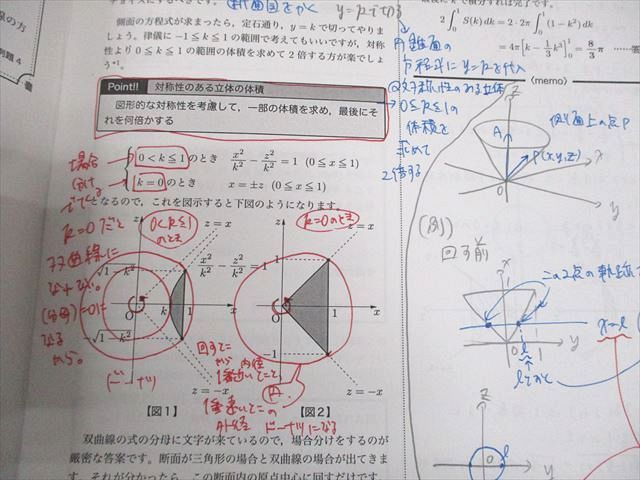 側面の方程式が求まったら，定石通り，y＝kで切ってやりま
しょう。律儀に−1≦k≦1の範囲で考えてもいいですが，対称
性より0≦k≦1の範囲の体積を求めて2倍する方が楽でしょ
う*1。
Point!! 対称性のある立体の体積
図形的な対称性を考慮して，一部の体積を求め，最後にそ
れを何倍かする
0＜k≦1のとき x²/k² − z²/k² = 1 (0≦x≦1)
k＝0のとき x＝±z (0≦x≦1)
となるので，これを図示すると下図のようになります。
場合
k=0だと
双曲線に
(分母)=0に
なる
から。
ドーナツ
0<k≦1
のとき
z
z＝x
x²/k² − z²/k² = 1
√1−k²
O
k
1
x
−√1−k²
z＝−x
【図1】
k=0のとき
z
z＝x
1
O
1
x
−1
z＝−x
【図2】
回すで
から 内径
1番近いとこと
1番遠いとこの
外径
ドーナツになる
双曲線の式の分母に文字が来ているので，場合分けをするのが
厳密な答案です。断面が三角形の場合と双曲線の場合が出てきま
す。それが分かったら，この断面内の原点中心に回すだけです。
2∫₀¹ S(k) dk = 2·2π∫₀¹ (1−k²) dk
= 4π[k − 1/3 k³]₀¹ = 8/3 π
〈memo〉
円錐面の
方程式に y=kを代入
②対称性のある立体
→0≦k≦1の
体積を
求めて
2倍する
z
A
側面上の点P
P(x,y,z)
x
O
y
(例)
回す前
x
この2点の軌跡
x=l
O
1
y
l
lとおく
z
l
O
y
例題4